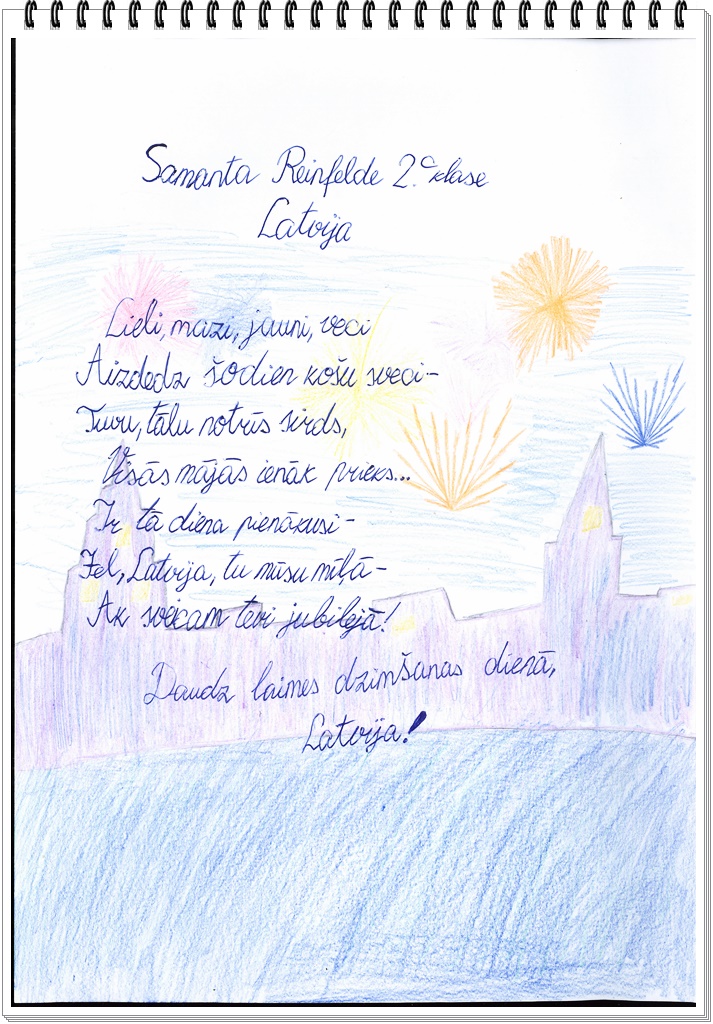 Samanta Reinfelde 2.c klase
Latvija
Lieli, mazi, jauni, veci
Aizdedz šodien košu sveci-
Tuvu, tālu notrīs sirds,
Visās mājās ienāk prieks...
Ir tā diena pienākusi-
Zel, Latvija, tu mūsu mīļā-
Ak sveicam tevi jubilejā!
Daudz laimes dzimšanas dienā,
Latvija!